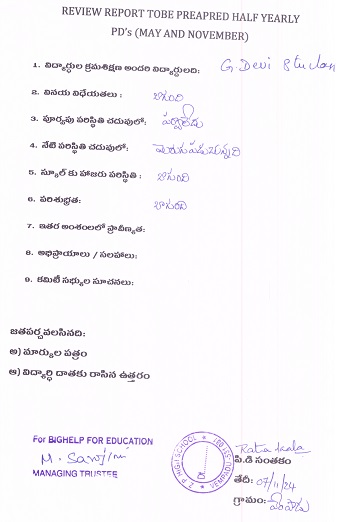 REVIEW REPORT TOBE PREAPRED HALF YEARLY
PD's (MAY AND NOVEMBER)
1. విద్యార్థుల క్రమశిక్షణ అందరి విద్యార్థులది: G. Devi
2. వినయ విధేయతలు : బాగుంది
3. పూర్వపు పరిస్థితి చదువులో: పర్వాలేదు
4. నేటి పరిస్థితి చదువులో: మెరుగుపడుచున్నది
5. స్కూల్ కు హాజరు పరిస్థితి : బాగుంది
6. పరిశుభ్రత: బాగుంది
7. ఇతర అంశంలలో ప్రావీణ్యత:
8. అభిప్రాయాలు / సలహాలు:
9. కమిటీ సభ్యుల సూచనలు:
జతపర్చవలసినది:
అ) మార్కుల పత్రం
ఆ) విద్యార్థి దాతకు రాసిన ఉత్తరం
For BIGHELP FOR EDUCATION
MANAGING TRUSTEE
Z P HIGH SCHOOL
VEMPADU
పి.డి సంతకం
తేదీ: 07/11/24
గ్రామం: